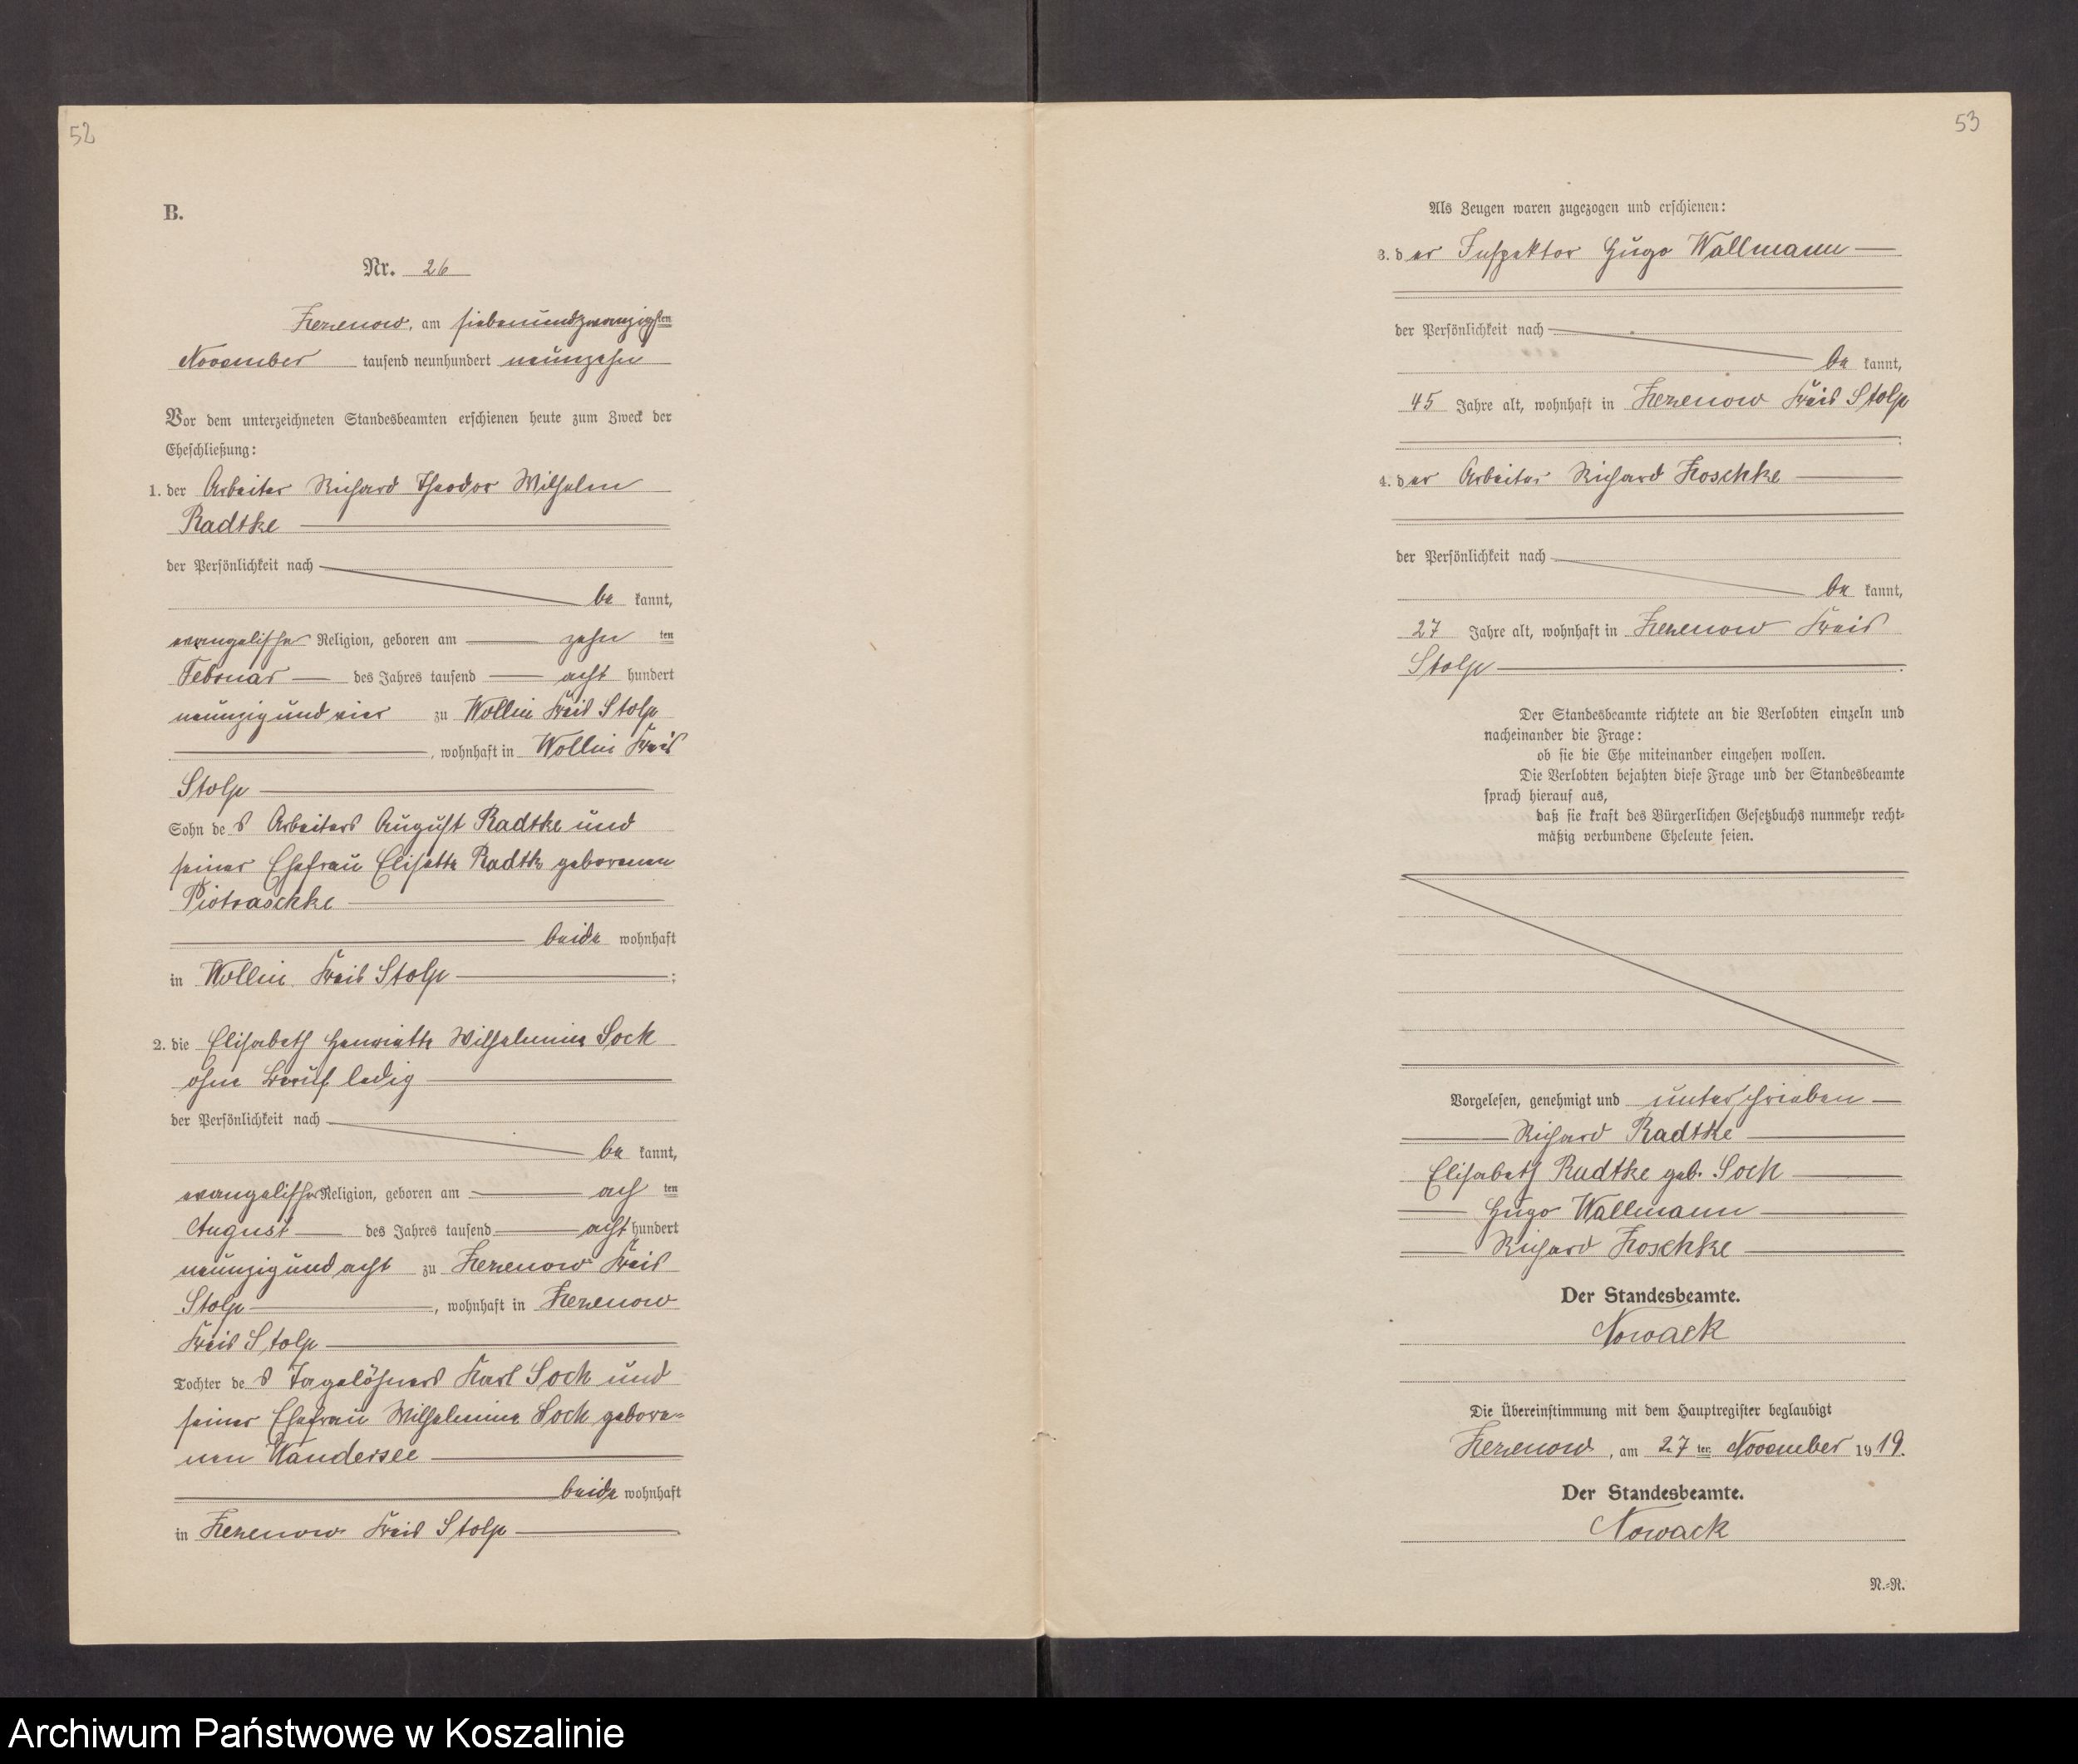 52
B.
Nr. 26
Zezenow, am siebenundzwanzigsten
November tausend neunhundert neunzehn
Vor dem unterzeichneten Standesbeamten erschienen heute zum Zweck der
Eheschließung:
1. der Arbeiter Richard Theodor Wilhelm
Radtke
der Persönlichkeit nach
be kannt,
evangelischer Religion, geboren am zehn ten
Februar des Jahres tausend acht hundert
neunzig und vier zu Wollin Kreis Stolp
, wohnhaft in Wollin Kreis
Stolp
Sohn de s Arbeiters August Radtke und
seiner Ehefrau Elisette Radtke geborenen
Piotraschke
beide wohnhaft
in Wollin Kreis Stolp ;
2. die Elisabeth Henriette Wilhelmine Sock
ohne Beruf ledig
der Persönlichkeit nach
be kannt,
evangelischer Religion, geboren am ach ten
August des Jahres tausend acht hundert
neunzig und acht zu Zezenow Kreis
Stolp , wohnhaft in Zezenow
Kreis Stolp
Tochter de s Tagelöhners Karl Sock und
seiner Ehefrau Wilhelmine Sock gebore-
nen Wandersee
beide wohnhaft
in Zezenow Kreis Stolp
53
Als Zeugen waren zugezogen und erschienen:
3. d er Inspektor Hugo Wallmann
der Persönlichkeit nach
be kannt,
45 Jahre alt, wohnhaft in Zezenow Kreis Stolp
;
4. d er Arbeiter Richard Koschke
der Persönlichkeit nach
be kannt,
27 Jahre alt, wohnhaft in Zezenow Kreis
Stolp .
Der Standesbeamte richtete an die Verlobten einzeln und
nacheinander die Frage:
ob sie die Ehe miteinander eingehen wollen.
Die Verlobten bejahten diese Frage und der Standesbeamte
sprach hierauf aus,
daß sie kraft des Bürgerlichen Gesetzbuchs nunmehr recht-
mäßig verbundene Eheleute seien.
Vorgelesen, genehmigt und unterschrieben
Richard Radtke
Elisabeth Radtke geb. Sock
Hugo Wallmann
Richard Koschke
Der Standesbeamte.
Nowack
Die Übereinstimmung mit dem Hauptregister beglaubigt
Zezenow, am 27 ten November 1919.
Der Standesbeamte.
Nowack
N.-R.
Archiwum Państwowe w Koszalinie